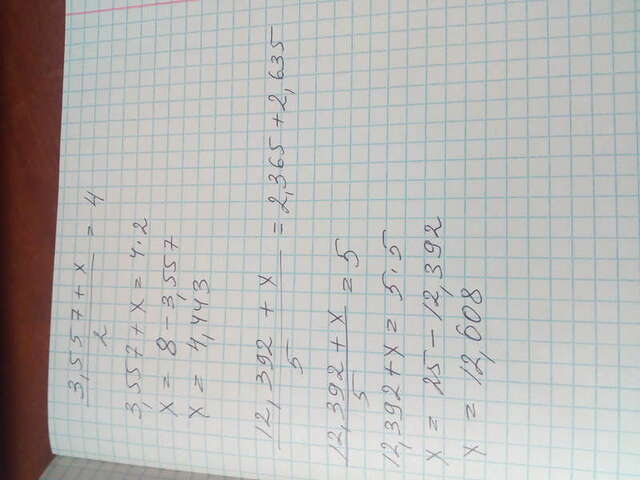 3,557 + x / 2 = 4
3,557 + x = 4 · 2
x = 8 - 3,557
x = 4,443
12,392 + x / 5 = 2,365 + 2,635
12,392 + x / 5 = 5
12,392 + x = 5 · 5
x = 25 - 12,392
x = 12,608